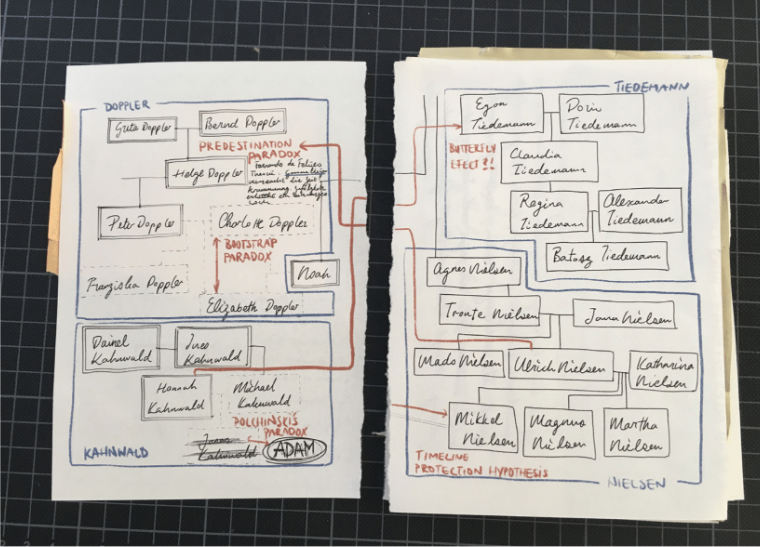 DOPPLER
Greta Doppler
Bernd Doppler
PREDESTINATION
PARADOX
Helge Doppler
die Zeit
Peter Doppler
Charlotte Doppler
BOOTSTRAP
PARADOX
Noah
Franziska Doppler
Elizabeth Doppler
Dainel
Kahnwald
Ines
Kahnwald
Hannah
Kahnwald
Michael
Kahnwald
POLCHINSKI'S
PARADOX
Jonas
Kahnwald
ADAM
KAHNWALD
TIEDEMANN
Egon
Tiedemann
Doris
Tiedemann
BUTTERFLY
EFECT?!
Claudia
Tiedemann
Regina
Tiedemann
Alexander
Tiedemann
Batosz Tiedemann
Agnes Nielsen
Tronte Nielsen
Jana Nielsen
Mads Nielsen
Ulrich Nielsen
Katharina
Nielsen
Mikkel
Nielsen
Magnus
Nielsen
Martha
Nielsen
TIMELINE
PROTECTION HYPOTHESIS
NIELSEN